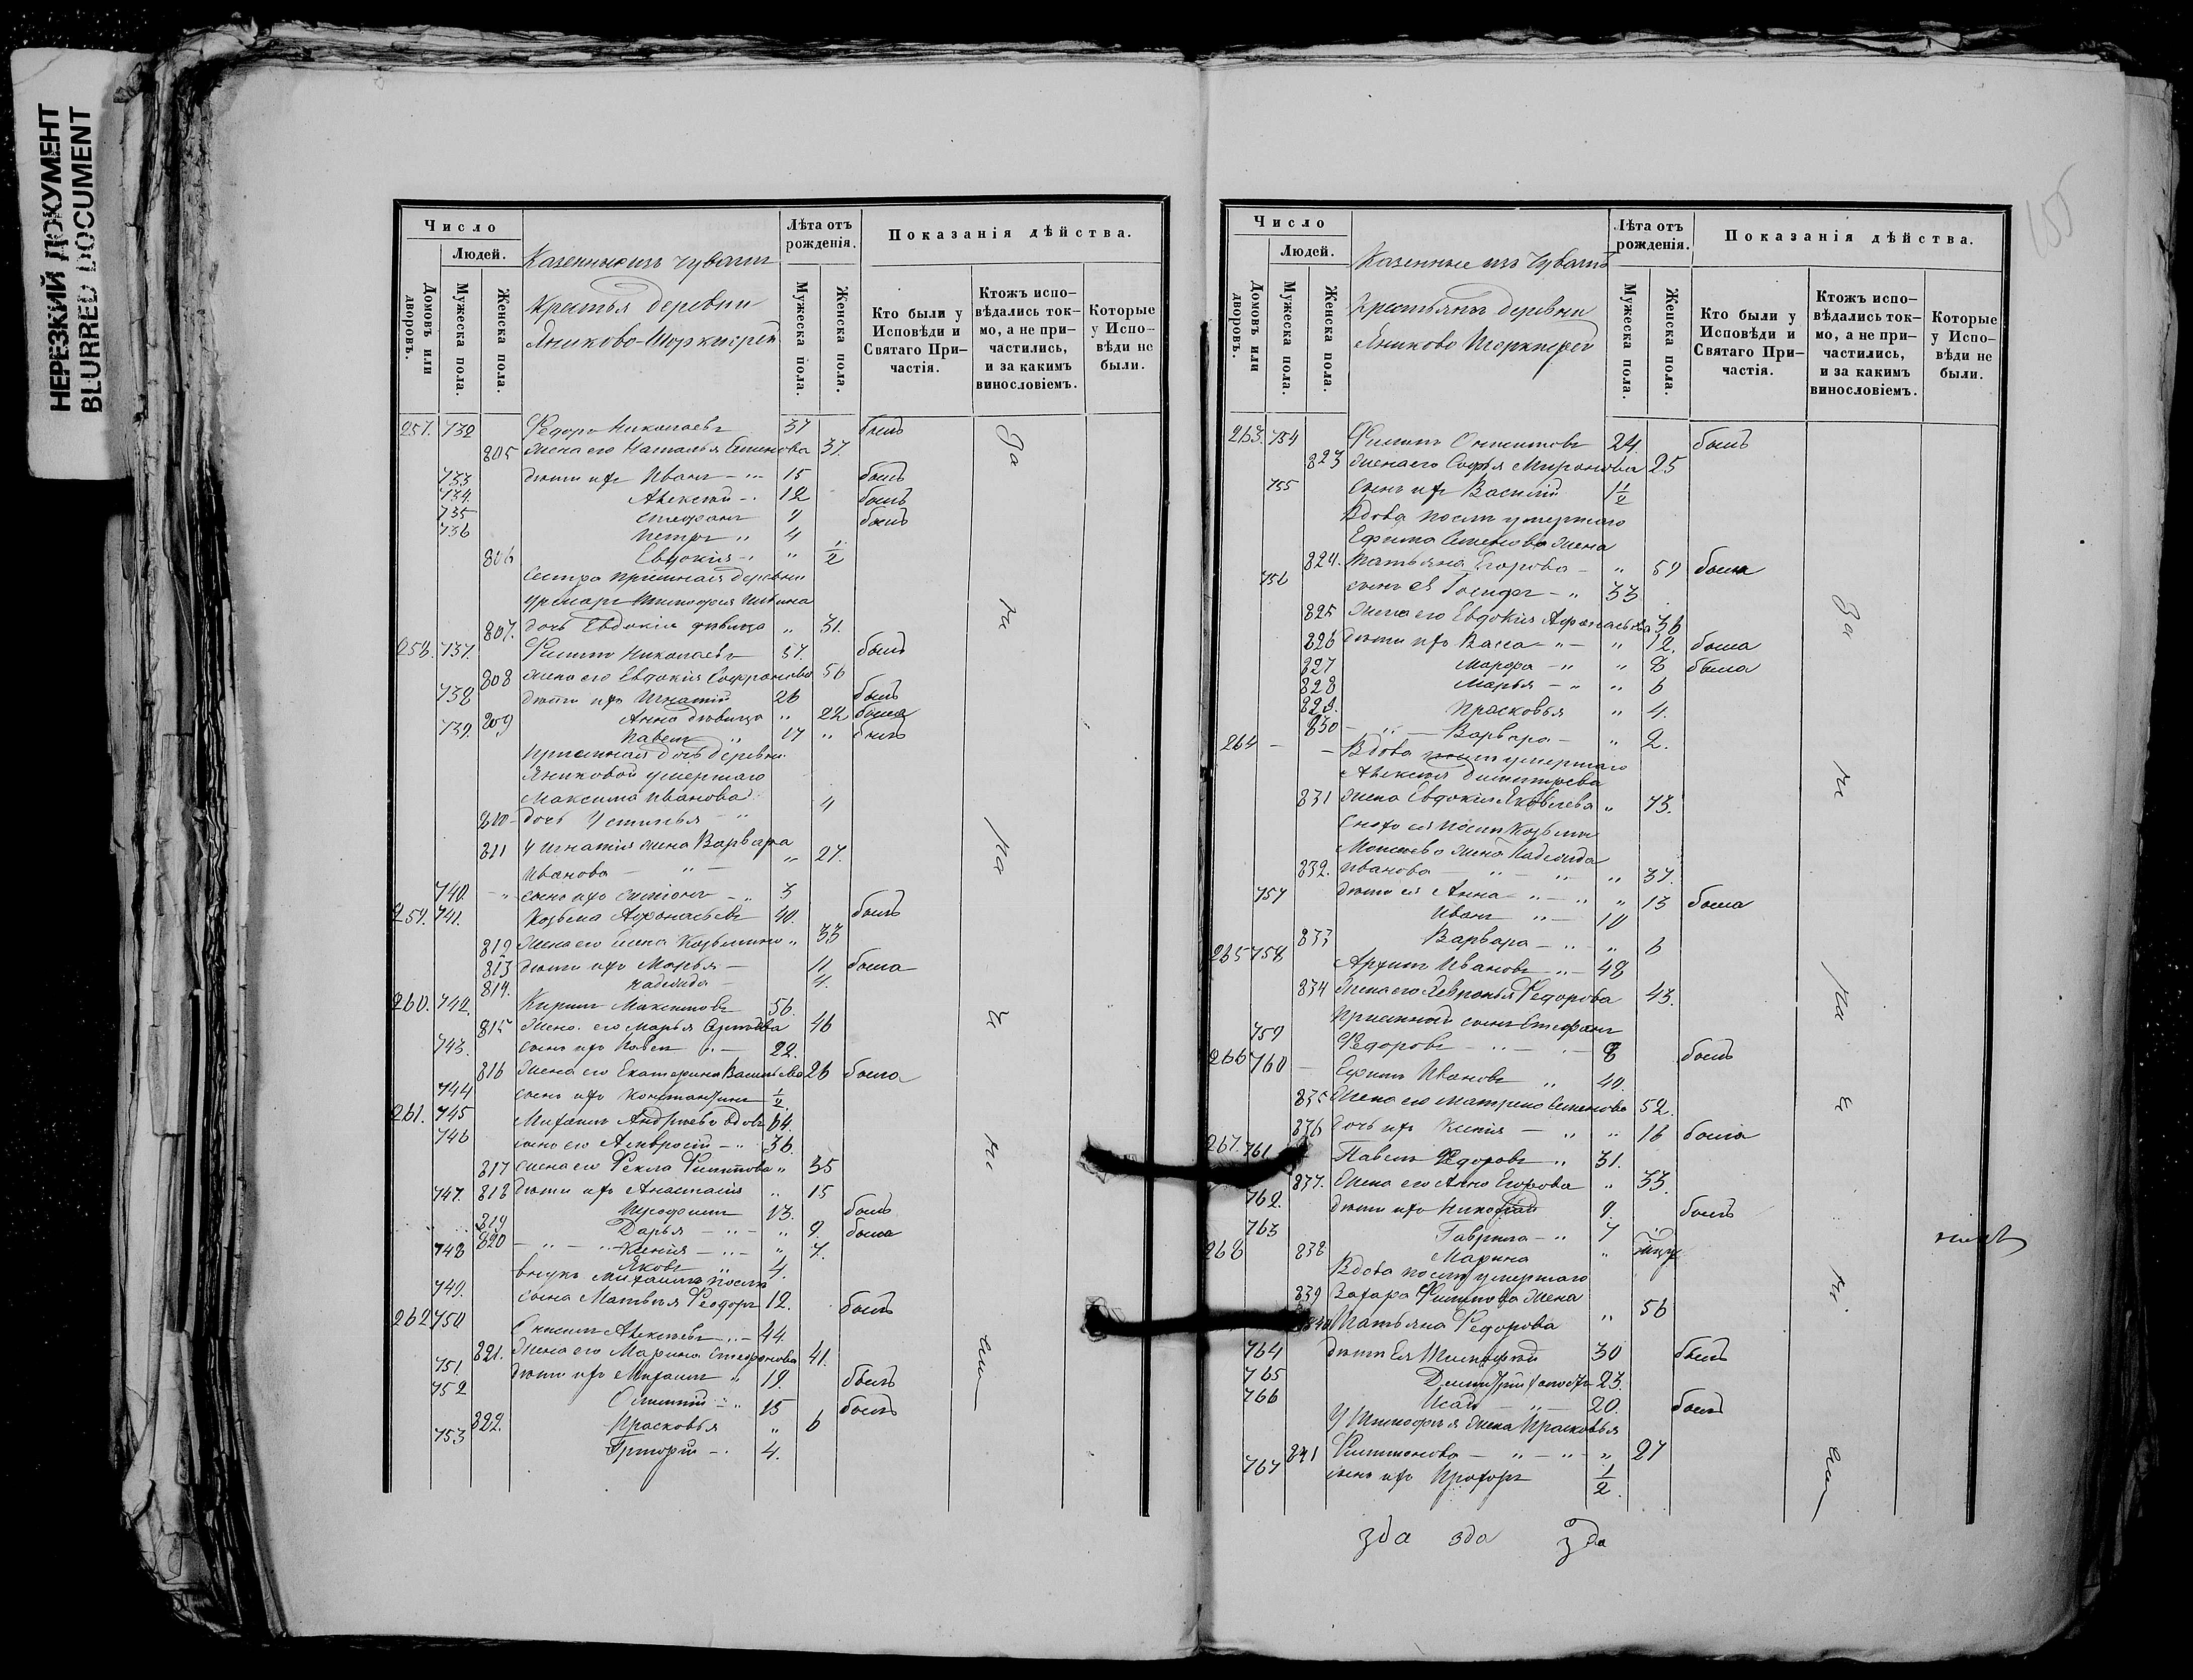 НЕРЕЗКИЙ ДОКУМЕНТ
BLURRED DOCUMENT
155
Число
Людей.
Домовъ или дворовъ.
Мужеска пола.
Женска пола.
Казенные изъ чувашъ
деревни
Яниково-
Лѣта отъ рожденія.
Мужеска пола.
Женска пола.
Показанія дѣйства.
Кто были у Исповѣди и Святаго Причастія.
Ктожъ исповѣдались токмо, а не причастились, и за какимъ винословіемъ.
Которые у Исповѣди не были.
257. 732 Ѳедоръ Николаевъ 37 былъ
805 Жена его Наталья Семенова 37.
733 дѣти ихъ Иванъ 15 былъ
734. Алексѣй 12 былъ
735 Стефанъ 7 былъ
736 Петръ 4
806 Евдокія " 1/2
деревни
807. дочь Евдокія дѣвица " 31.
258. 737. Филиппъ Николаевъ 57. былъ
808 жена его Евдокія Софронова 56
738 дѣти ихъ Игнатій 26 былъ
809 Анна дѣвица " 22 была
739. Павелъ 17 " былъ
дочь деревни
Яниковой умершаго
Максима Иванова 4
810 дочь Устинья "
811 У Игнатія жена Варвара
Иванова " 27.
740. сынъ ихъ Симіонъ 3
259. 741. Козьма Афонасьевъ 40. былъ
812 жена его Козьмина " 33
813 дѣти ихъ Марья 11 была
814. Надежда 4.
260. 742. Кириллъ Максимовъ 56.
815 жена его Марья 46
743. сынъ ихъ Павелъ 22.
816 жена его Екатерина Васильева 26 была
744 сынъ ихъ Константинъ 1/2
261. 745 Михаилъ Андреевъ вдовъ 64.
746 сынъ его Амвросій 36.
817 жена его Ѳекла Филиппова " 35
747. 818 дѣти ихъ Анастасія " 15
Трофимъ 13. былъ
819 Дарья " 9. была
820 Ксенія " 7.
748 Яковъ 4.
внукъ Михаила послѣ
749. сына Матвѣя Ѳеодоръ 12. былъ
262 750 Онисимъ Алексѣевъ 44.
821. жена его Марина Стефанова 41.
751. дѣти ихъ Михаилъ 19. былъ
752 15 былъ
822. Прасковья " 6
753 Григорій 4.
Число
Людей.
Домовъ или дворовъ.
Мужеска пола.
Женска пола.
Казенные изъ чувашъ
крестьянъ деревни
Яниково
Лѣта отъ рожденія.
Мужеска пола.
Женска пола.
Показанія дѣйства.
Кто были у Исповѣди и Святаго Причастія.
Ктожъ исповѣдались токмо, а не причастились, и за какимъ винословіемъ.
Которые у Исповѣди не были.
263. 754 Филиппъ 24. былъ
823 жена его Софья Миронова 25
755 сынъ ихъ Василій 1 1/2
Вдова послѣ умершаго
Ефима Семенова жена
824. Татьяна Егорова " 59 была
756 сынъ ея Іосифъ 33
825 жена его Евдокія Афанасьева 36
826 дѣти ихъ Васса " 12. была
827 Марфа " 8 была
828 Марья " 6
829. Прасковья " 4.
830 Варвара " 2.
264 Вдова умершаго
Алексѣя Димитріева
831 жена Евдокія Яковлева " 73.
жена Надежда
832. Иванова " 37.
дѣти ея Анна " 13 была
757 Иванъ 10
833 Варвара " 6
265 758 Архипъ Ивановъ 48
834 жена его Ѳедорова 43.
сынъ Стефанъ
759 Ѳедоровъ 8 былъ
266 760 Ефимъ Ивановъ 40.
835 жена его Матрена Семенова 52.
836 дочь ихъ Ксенія " 16 была
267. 761 Павелъ Ѳедоровъ 31.
837. жена его Анна Егорова " 33.
762. дѣти ихъ Николай 9. былъ
763 Гаврила 7
268 838 Марина "
Вдова послѣ умершаго
839 Захара Филиппова жена
840 Татьяна Ѳедорова " 56
764 дѣти ея Тимофей 30 былъ
765 Димитрій холостъ 23.
766 Исай 20. былъ
У Тимофея жена Прасковья
841 Филимонова " 27
767 сынъ ихъ Прохоръ 1/2
зда зда зда